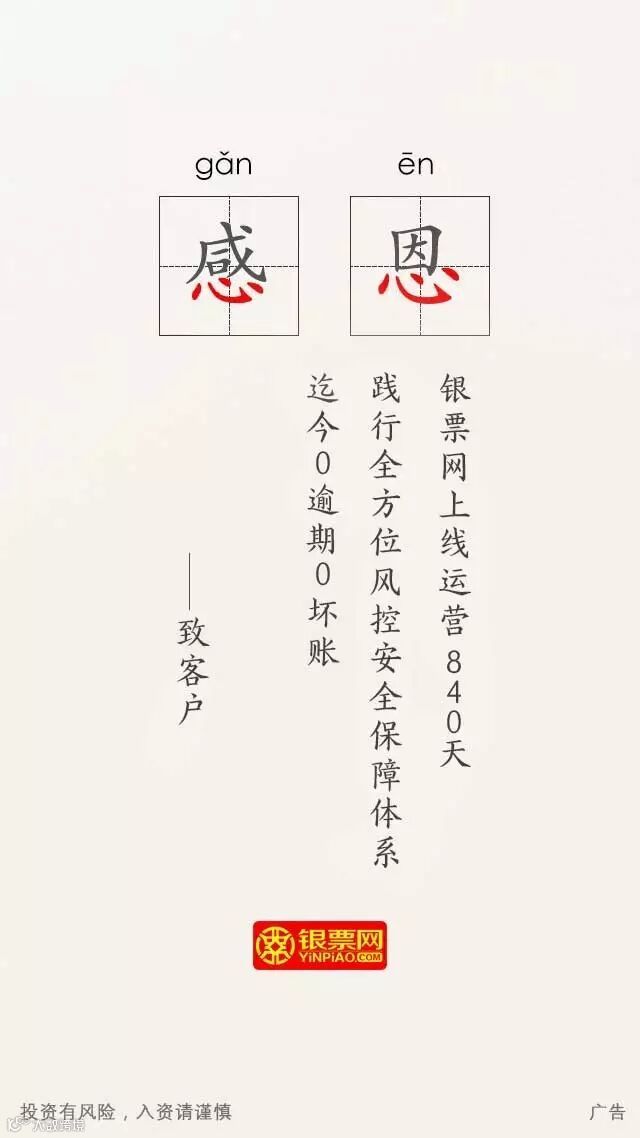 gǎn ēn
感恩
银票网上线运营840天
践行全方位风控安全保障体系
迄今0逾期0坏账
——致客户
银票网
YiNPiAO.COM
投资有风险，入资请谨慎
广告
大数跨境